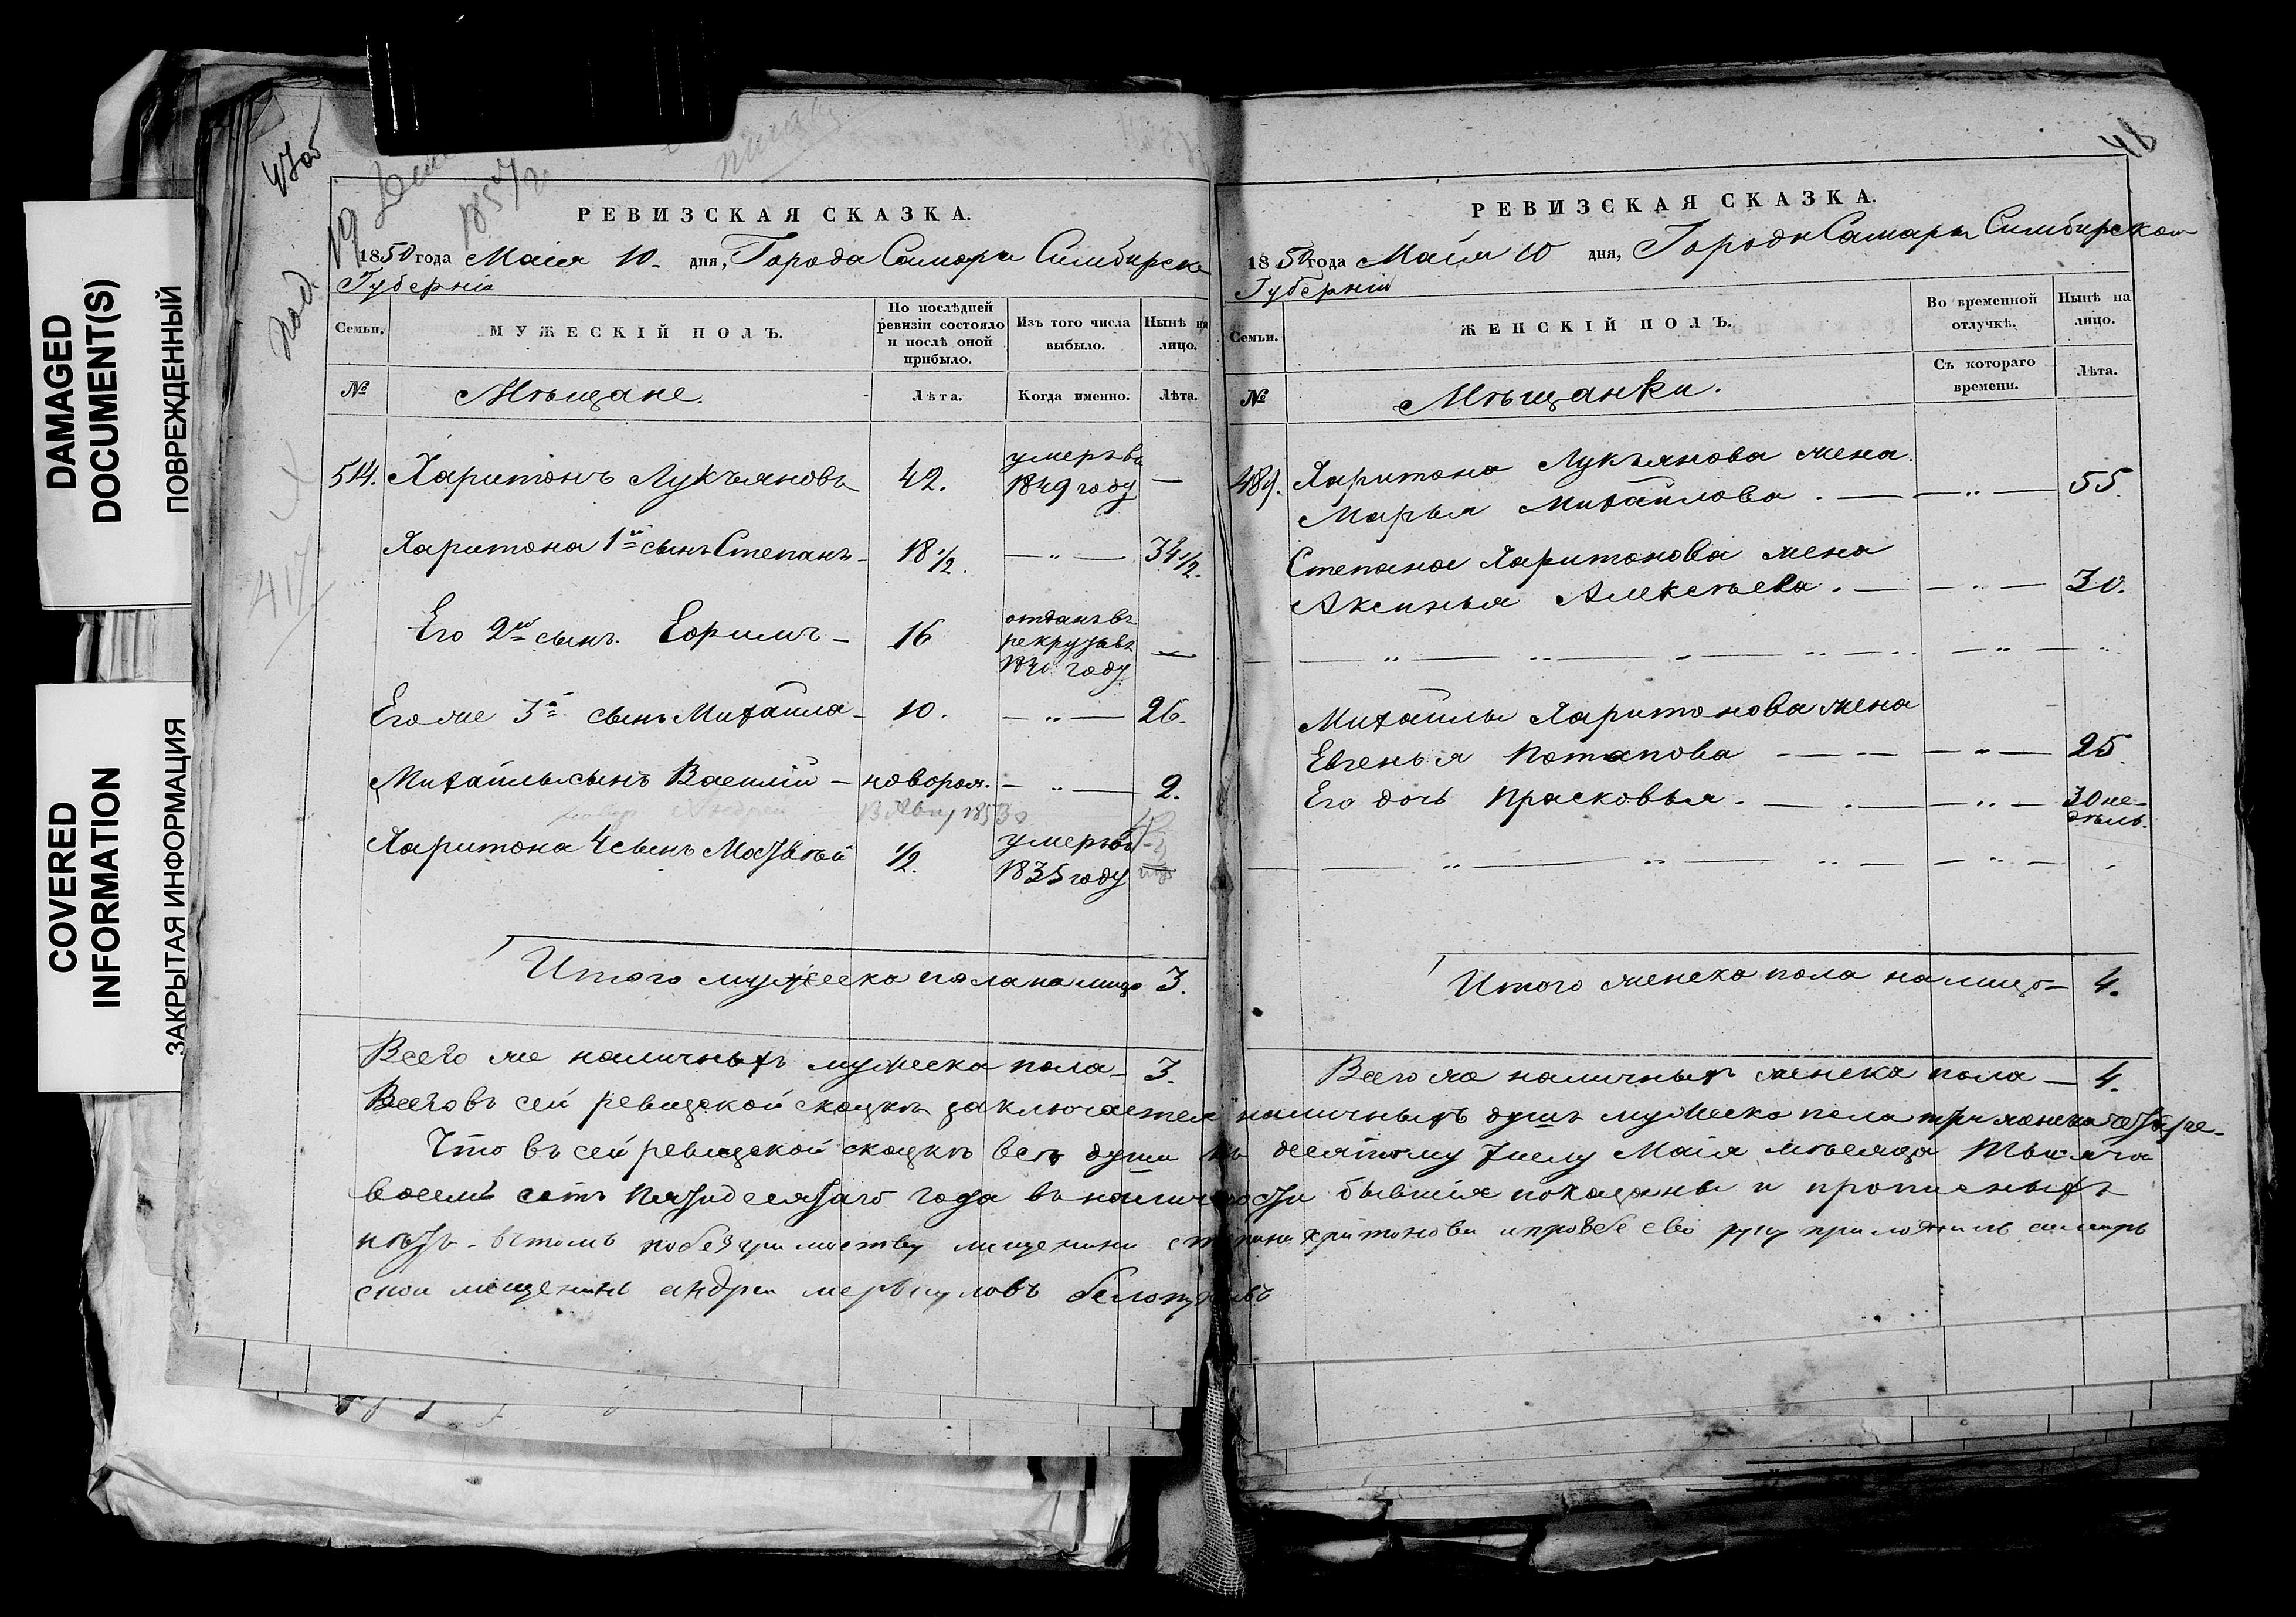 DAMAGED
DOCUMENT(S)
ПОВРЕЖДЕННЫЙ
COVERED
INFORMATION
ЗАКРЫТАЯ ИНФОРМАЦИЯ
47об
РЕВИЗСКАЯ СКАЗКА.
1850 года Маія 10 дня, Города Самары Симбирско
Губерніи
Семьи.
МУЖЕСКІЙ ПОЛЪ.
По послѣдней ревизіи состояло и послѣ оной прибыло.
Изъ того числа выбыло.
Нынѣ на лицо.
№
Мѣщане.
Лѣта.
Когда именно.
Лѣта.
514. Харитонъ Лукъяновъ 42. умеръ въ 1849 году —
Харитона 1й сынъ Степанъ 18 1/2. — " — 34 1/2.
Его 2й сынъ Ефимъ 16 отданъ въ рекруты въ году —
Его же 3й сынъ Михайла 10. — " — 26.
Михайлы сынъ Василій — новорож. — " — 2.
Андрей
Харитона 4 сынъ Матвей 1/2. умеръ въ 1835 году
Итого мужеска пола на лицо 3.
Всего же наличныхъ мужеска пола — 3.
48
РЕВИЗСКАЯ СКАЗКА.
1850 года Маія 10 дня, Города Самары Симбирской
Губерніи
Семьи.
ЖЕНСКІЙ ПОЛЪ.
Во временной отлучкѣ.
Нынѣ на лицо.
Съ котораго времени.
Лѣта.
№
Мѣщанки.
489. Харитона Лукъянова жена
Марья Михайлова. — — " — 55.
Степана Харитонова жена
Аксинья Алексѣева. — — " — 30.
Михайлы Харитонова жена
Евгенья Потапова — — " — 25.
Его дочь Прасковья. — — " — 30 недѣль.
Итого женска пола на лицо — 4.
Всего же наличныхъ женска пола — 4.
Всего въ сей ревизской сказкѣ заключается наличныхъ душъ мужеска пола три женска четыре.
Что въ сей ревизской сказкѣ всѣ души къ десятому числу Маія мѣсяца тысяча
восемь сотъ пятидесятаго года въ наличности бывшія показаны и прописныхъ
нѣтъ. въ томъ руку приложилъ самар
ской мещенинъ андрей меркуловъ